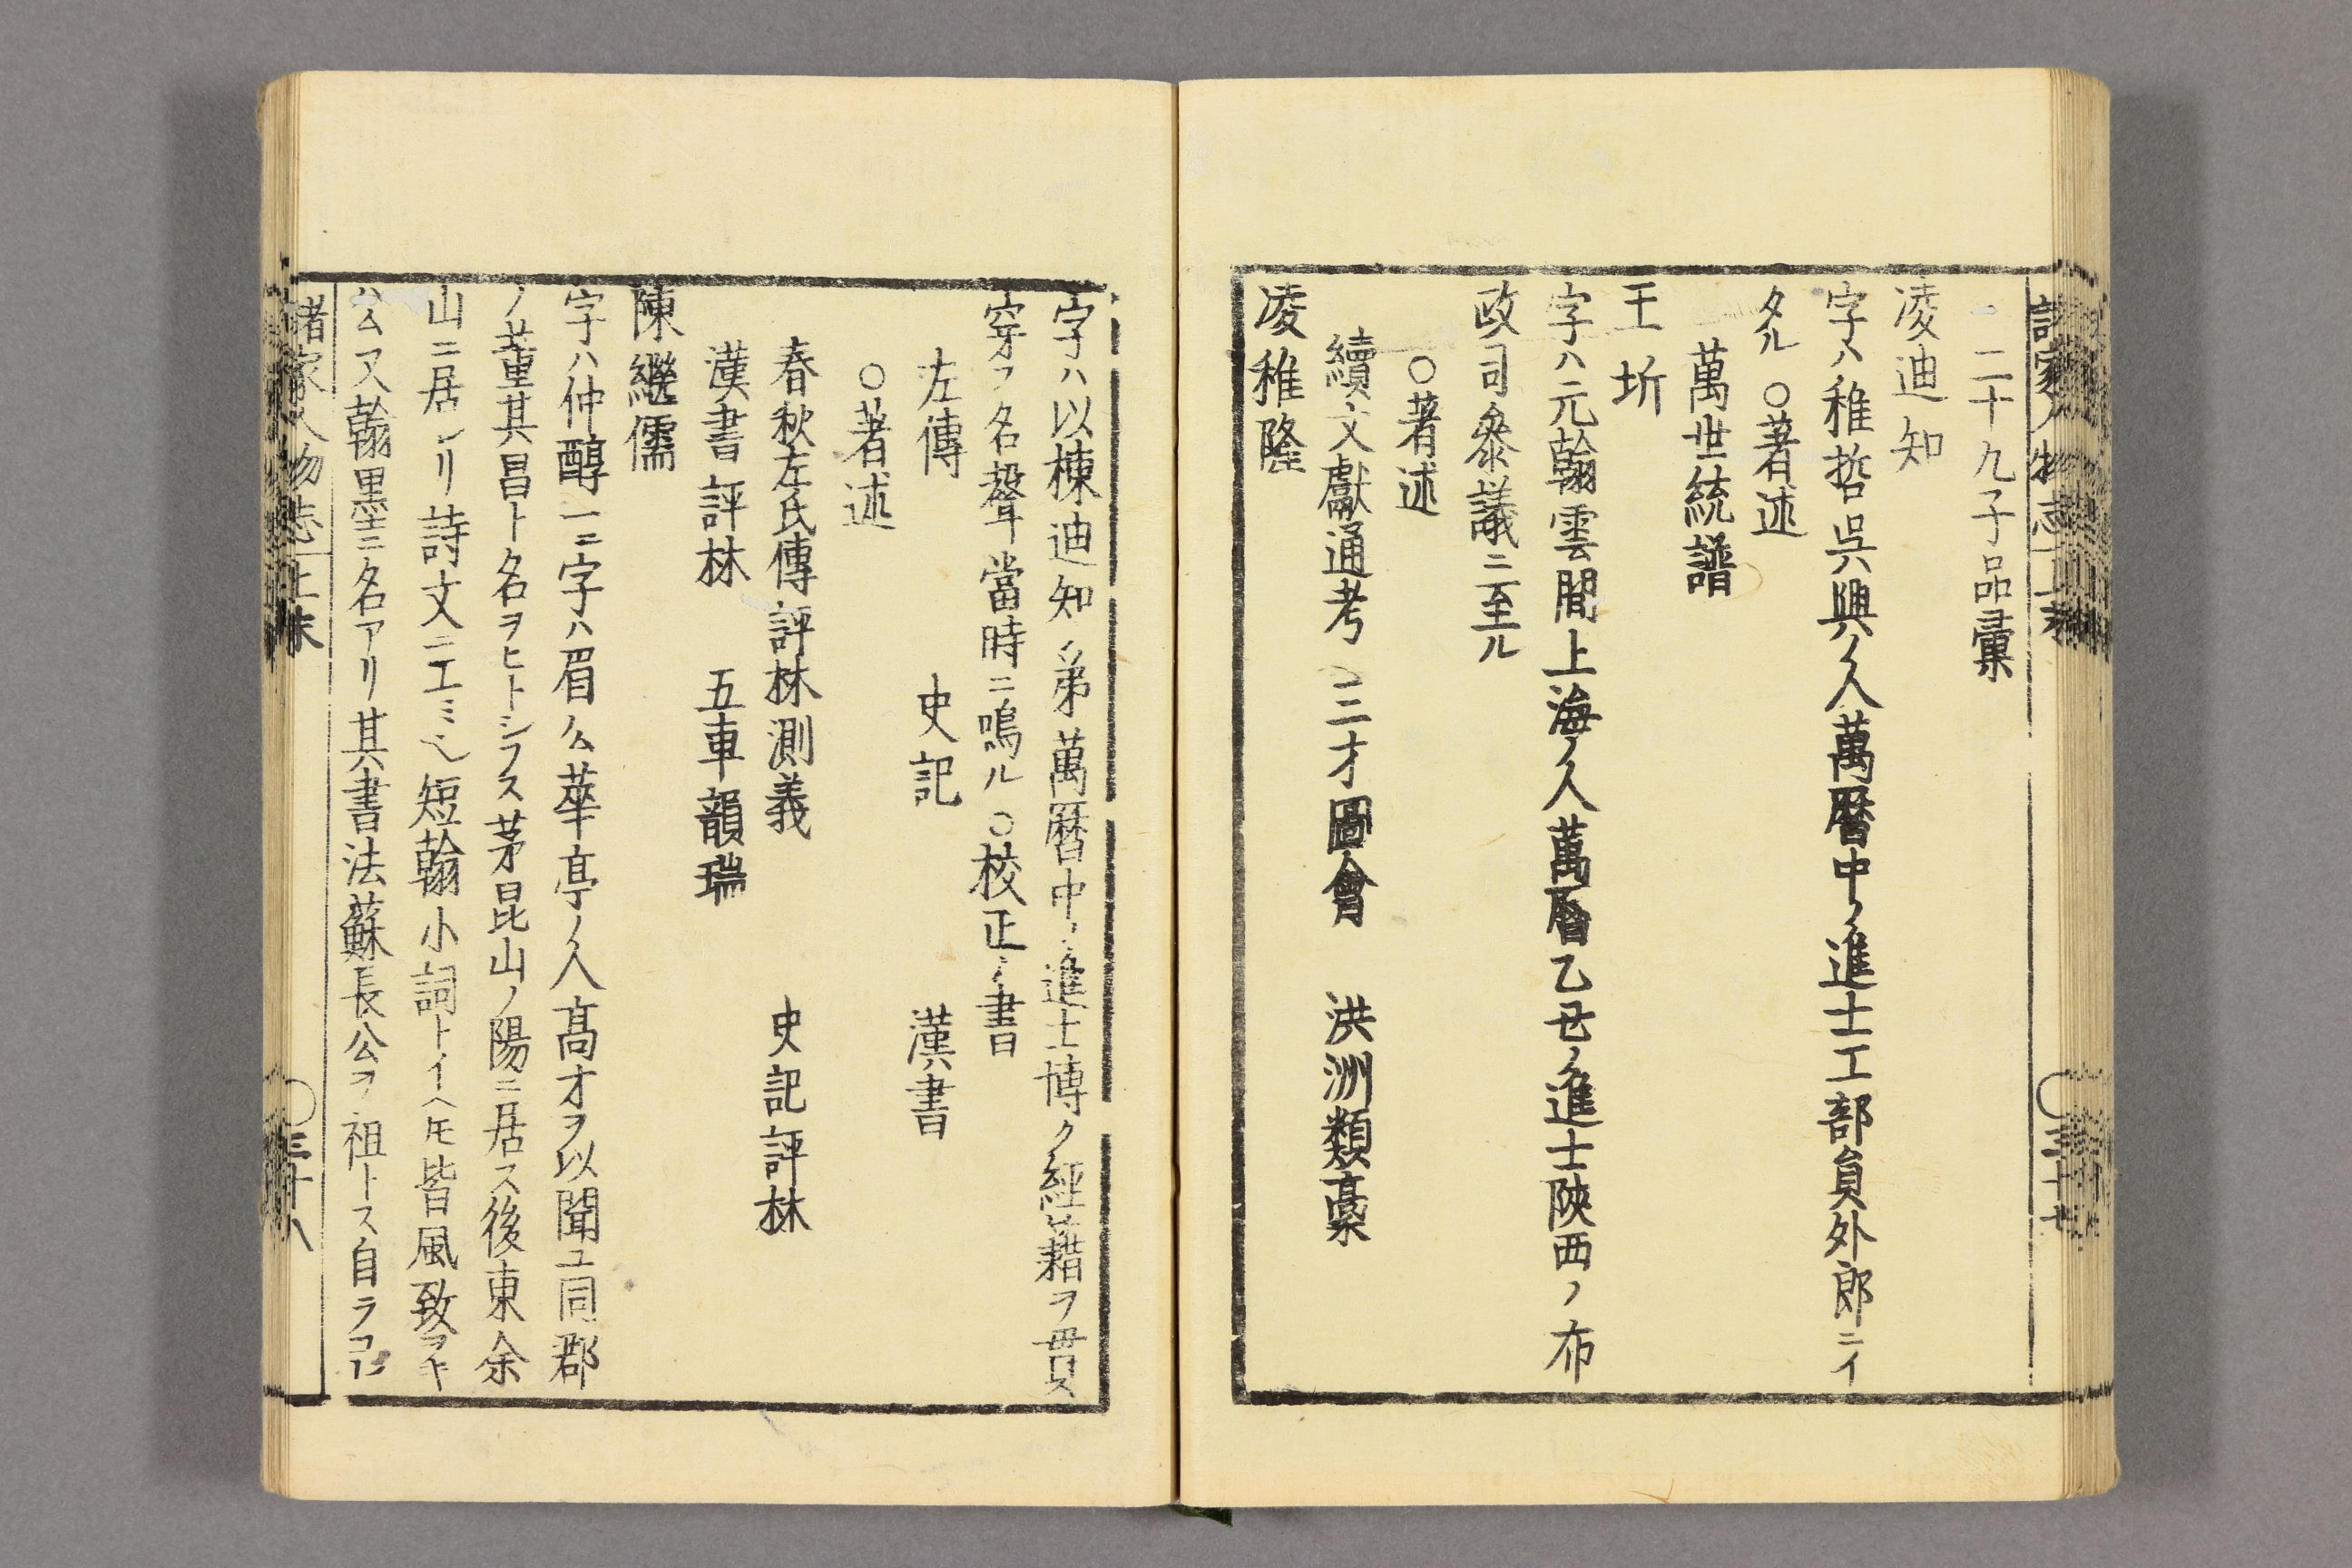 諸家人物志上末
○三十七
二十九子品彙
凌迪知
字ハ稚哲呉興ノ人萬暦中ノ進士工部員外郎ニイ
タル ○著述
萬世統譜
王圻
字ハ元翰雲間上海ノ人萬暦乙丑ノ進士陝西ノ布
政司参議ニ至ル
○著述
續文獻通考 三才圖會 洪洲類藁
凌稚隆
字ハ以棟迪知ノ弟萬暦中ノ進士博ク經籍ヲ貫
穿ス名聲當時ニ鳴ル ○校正ノ書
左傳 史記 漢書
○著述
春秋左氏傳評林測義 史記評林
漢書評林 五車韻瑞
陳繼儒
字ハ仲醇一ニ字ハ眉公華亭ノ人高才ヲ以聞ユ同郡
ノ董其昌ト名ヲヒトシフス茅昆山ノ陽ニ居ス後東余
山ニ居レリ詩文ニ工ミシ短翰小詞トイヘ𪜈皆風致ヲキ
公又翰墨ニ名アリ其書法蘇長公ヲ祖トス自ラ
諸家人物志 上末
○三十八